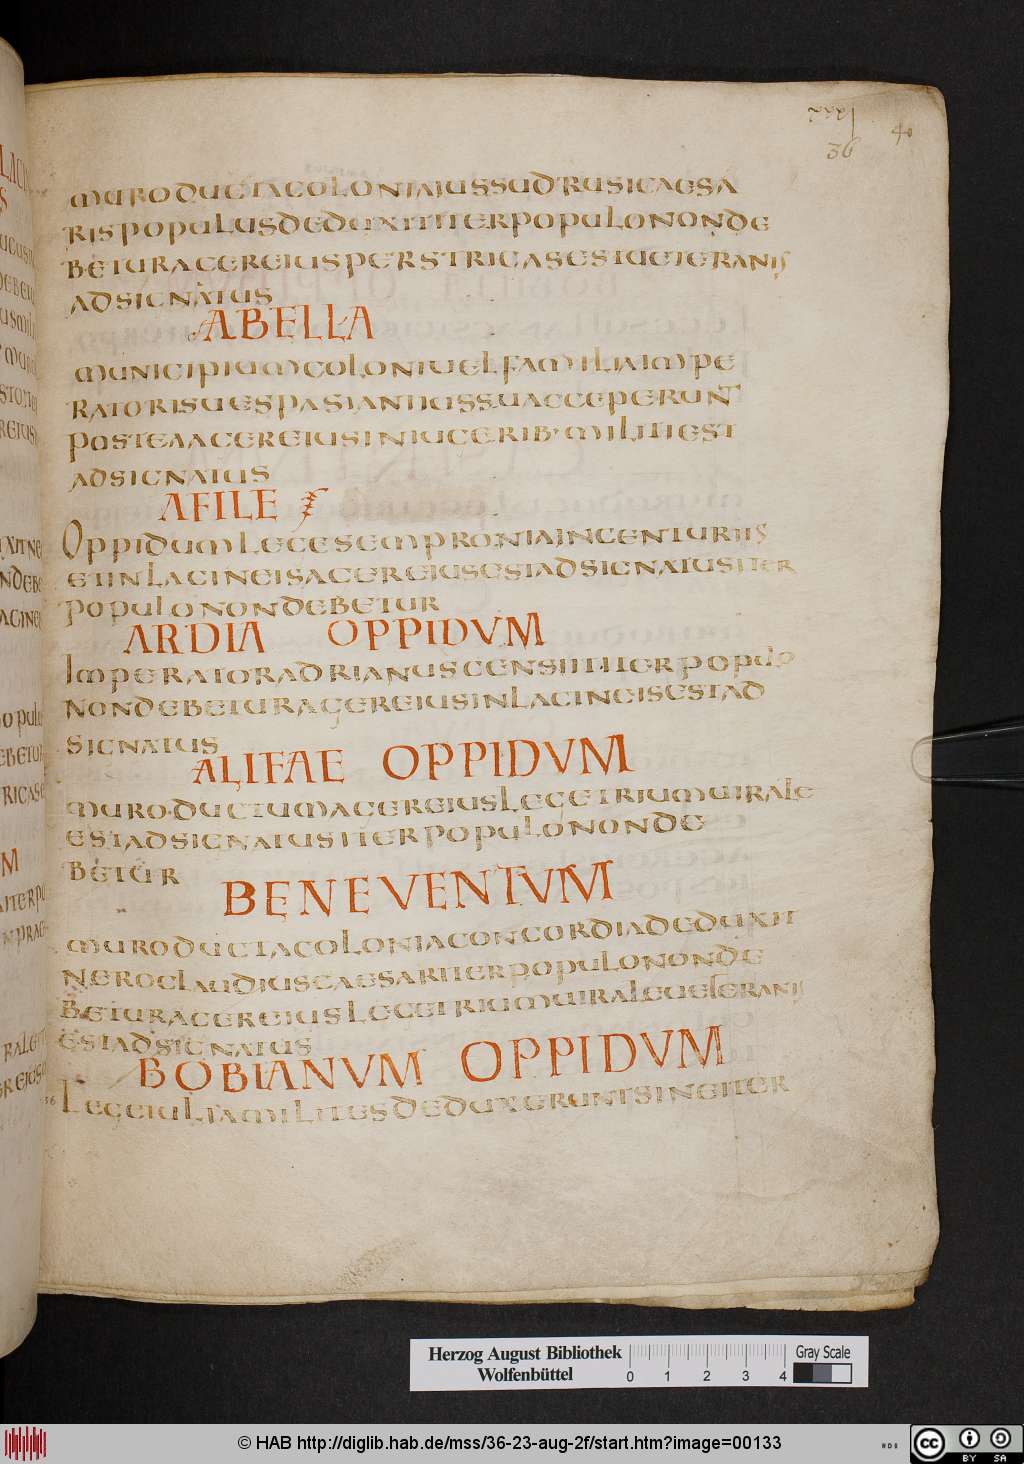 36
40
MURODUCTACOLONIAIUSSUDRUSICAESA
RISPOPULUSDEDUXITITERPOPULONONDE
BETURAGEREIUSPERSTRIGASESTUETERANIS
ADSIGNATUS
ABELLA
MUNICIPIUMCOLONIUELFAMILIAIMPE
RATORISUESPASIANIIUSSUACCEPERUNT
POSTEAAGEREIUSINIUGERIB·MILITIEST
ADSIGNATUS
AFILE
OPPIDUMLEGESEMPRONIAINCENTURIIS
ETINLACINEISAGEREIUSESTADSIGNATUSITER
POPULONONDEBETUR
ARDIA OPPIDVM
IMPERATORADRIANUSCENSIITITERPOPULO
NONDEBETURAGEREIUSINLACINEISESTAD
SIGNATUS
ALIFAE OPPIDVM
MURODUCTUMAGEREIUSLEGETRIUMUIRALE
ESTADSIGNATUSITERPOPULONONDE
BETUR
BENEVENTVM
MURODUCTACOLONIACONCORDIADEDUXIT
NEROCLAUDIUSCAESARITERPOPULONONDE
BETURAGEREIUSLEGETRIUMUIRALEUETERANIS
ESTADSIGNATUS
BOBIANVM OPPIDVM
LEGEIULIAMILITESDEDUXERUNTSINEITER
Herzog August Bibliothek
Wolfenbüttel
0 1 2 3 4
Gray Scale
© HAB http://diglib.hab.de/mss/36-23-aug-2f/start.htm?image=00133
cc BY SA